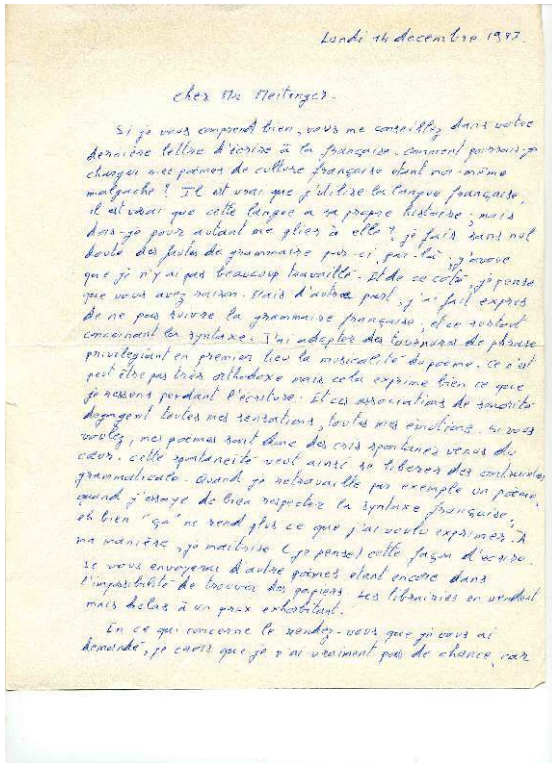 Lundi 14 decembre 1987.
cher Mr Meitinger.
Si je vous comprend bien, vous me conseillez dans votre
dernière lettre d'écrire à la française. Comment pourrais-je
changer mes poèmes de culture française etant moi-même
malgache ? Il est vrai que j'utilise la langue française,
il est vrai que cette langue a sa propre histoire ; mais
dois-je pour autant me plier à elle ? je fais sans nul
doute des fautes de grammaire par-ci, par-là ; j'avoue
que je n'y ai pas beaucoup travaillé. Et de ce coté, je pense
que vous avez raison. Mais d'autre part, j'ai fait exprès
de ne pas suivre la grammaire française, et ce surtout
concernant la syntaxe. J'ai adopter des tournures de phrase
privilégiant en premier lieu la musicalité du poème. Ce n'est
peut être pas très orthodoxe mais cela exprime bien ce que
je ressens pendant l'écriture. Et ces associations de sonorité
degagent toutes mes sensations, toutes mes émotions. Si vous
voulez, mes poèmes sont donc des cris spontanés venus du
cœur. Cette spontaneité veut ainsi se liberer des contraintes
grammaticale. Quand je retravaille par exemple un poème,
quand j'essaye de bien respecter la syntaxe française,
eh bien "ça" ne rend plus ce que j'ai voulu exprimer. À
ma manière, je maitrise (je pense) cette façon d'écrire.
Je vous envoyerai d'autre poèmes etant encore dans
l'impossibilité de trouver des papiers. Les librairies en vendent
mais helas à un prix exhorbitant.
En ce qui concerne le rendez-vous que je vous ai
demandé, je crois que je n'ai vraiment pas de chance, car